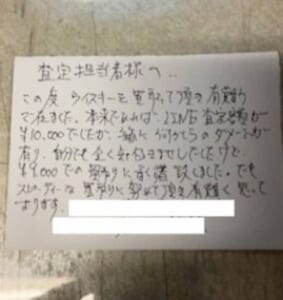 査定担当者様へ..
この度 ウイスキーを買取って頂き有難う
ございました。本来であれば、
¥10,000でしたが、箱に何かしらのダメージが
有り、自分でも全く気付きませんでしたけど、
¥9,000での買取りに
スピーディーな買取りに努めて頂き有難く思って
おります。